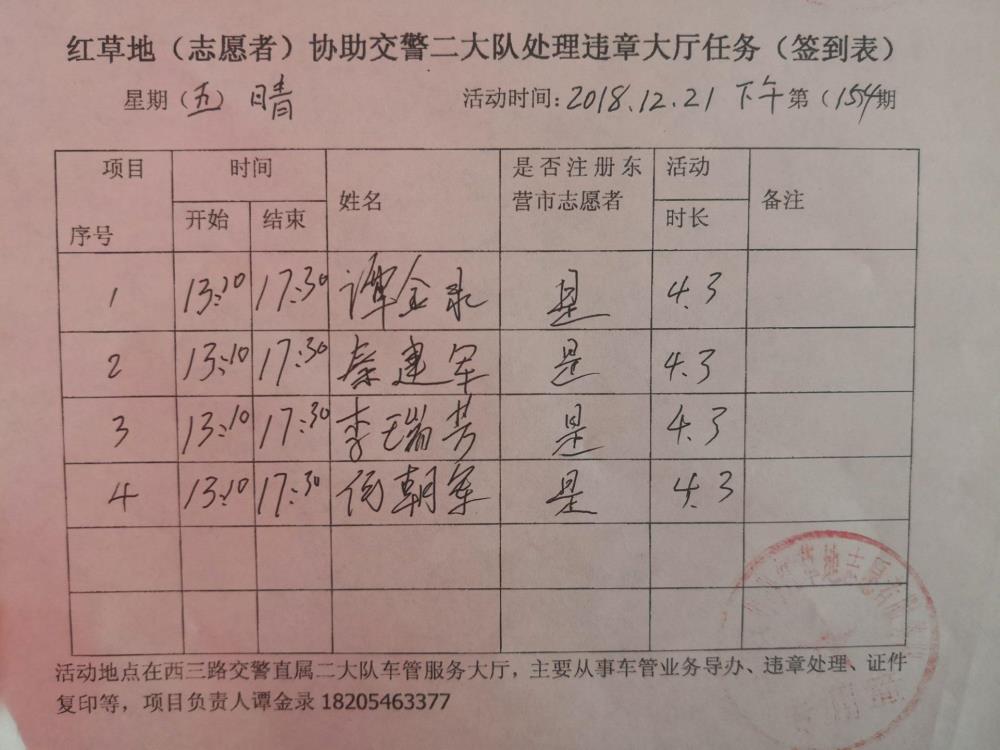 红草地（志愿者）协助交警二大队处理违章大厅任务（签到表）
星期（五） 晴 活动时间: 2018.12.21 下午 第（154期
项目 时间 姓名 是否注册东营市志愿者 活动 备注
序号 开始 结束 时长
1 13:10 17:30 谭金录 是 4.3
2 13:10 17:30 秦建军 是 4.3
3 13:10 17:30 李瑞芳 是 4.3
4 13:10 17:30 朝军 是 4.3
草地志愿
活动地点在西三路交警直属二大队车管服务大厅，主要从事车管业务导办、违章处理、证件
复印等，项目负责人谭金录 18205463377